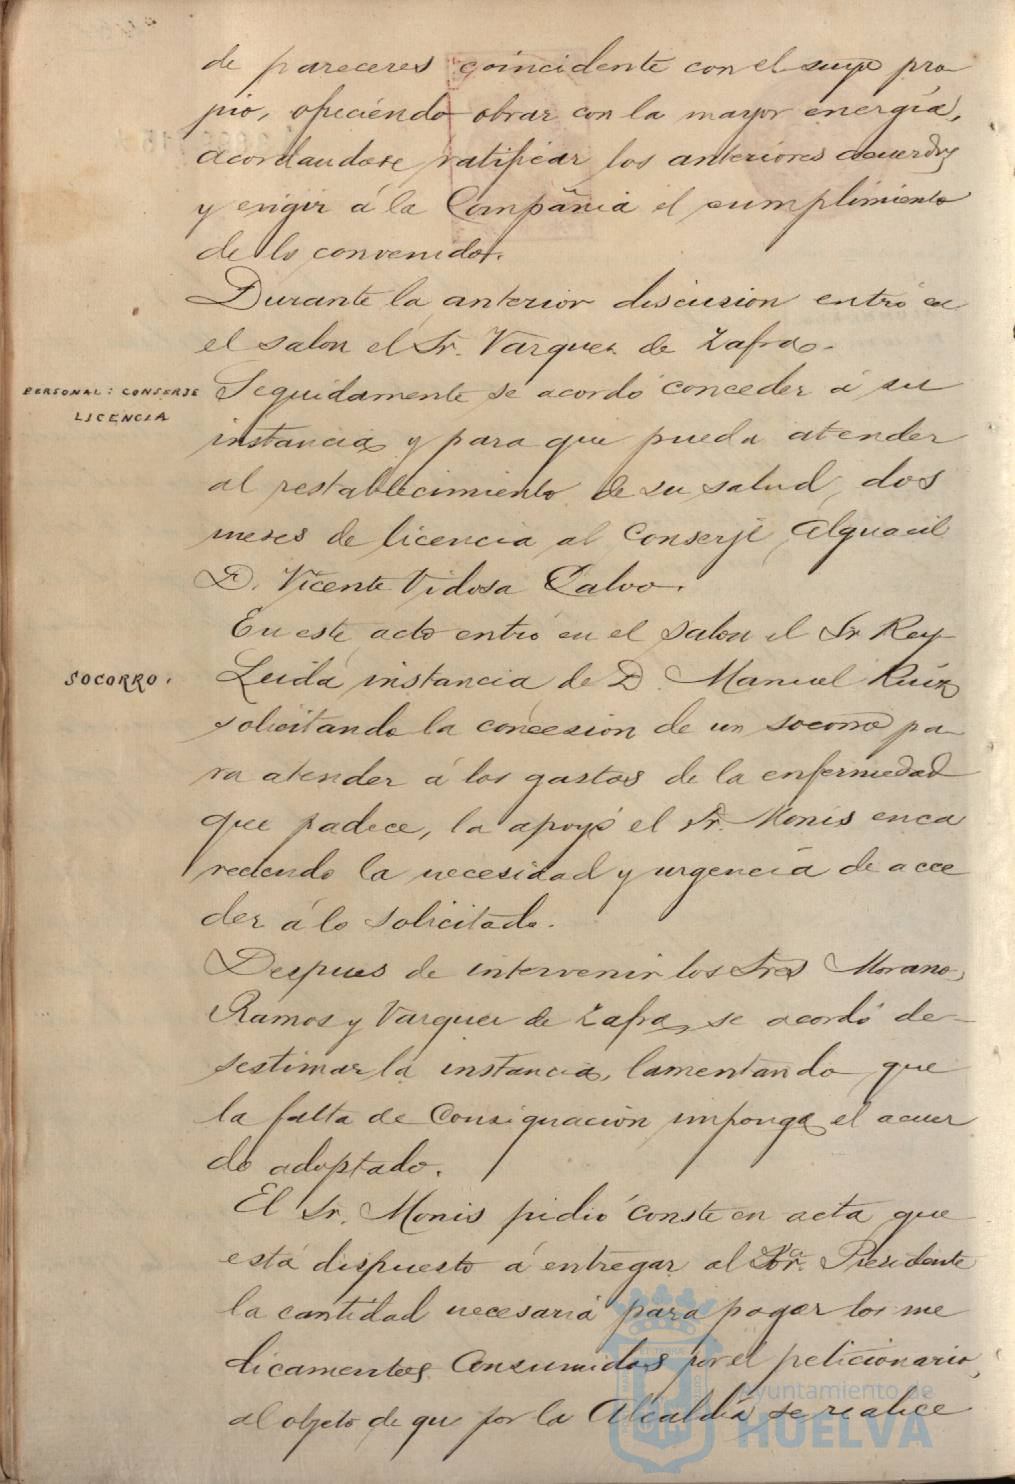 de pareceres coincidente con el suyo pro
pio, ofreciendo obrar con la mayor energía,
acordandose ratificar los anteriores acuerdos
y exigir á la Compañia el cumplimiento
de lo convenido.
Durante la anterior discusion entró en
el salon el Sr. Vazquez de Zafra.
PERSONAL: CONSERJE
LICENCIA
Seguidamente se acordó conceder á su
instancia y para que pueda atender
al restablecimiento de su salud, dos
meses de licencia al Conserje Alguacil
D. Vicente Vidosa Calvo.
En este acto entró en el salon el Sr Rey
SOCORRO.
Leida instancia de D. Manuel Ruiz
solicitando la concesion de un socorro pa
ra atender á los gastos de la enfermedad
que padece, la apoyó el Sr. Monis enca
reciendo la necesidad y urgencia de acce
der á lo solicitado.
Despues de intervenir los Sres Morano,
Ramos y Vazquez de Zafra, se acordó de-
sestimar la instancia, lamentando que
la falta de Consignación imponga el acuer
do adoptado.
El Sr. Monis pidió conste en acta que
está dispuesto á entregar al Sor. Presidente
la cantidad necesaria para pagar los me
dicamentos consumidos por el peticionario,
al objeto de que por la Alcaldía se realice
Ayuntamiento de
HUELVA